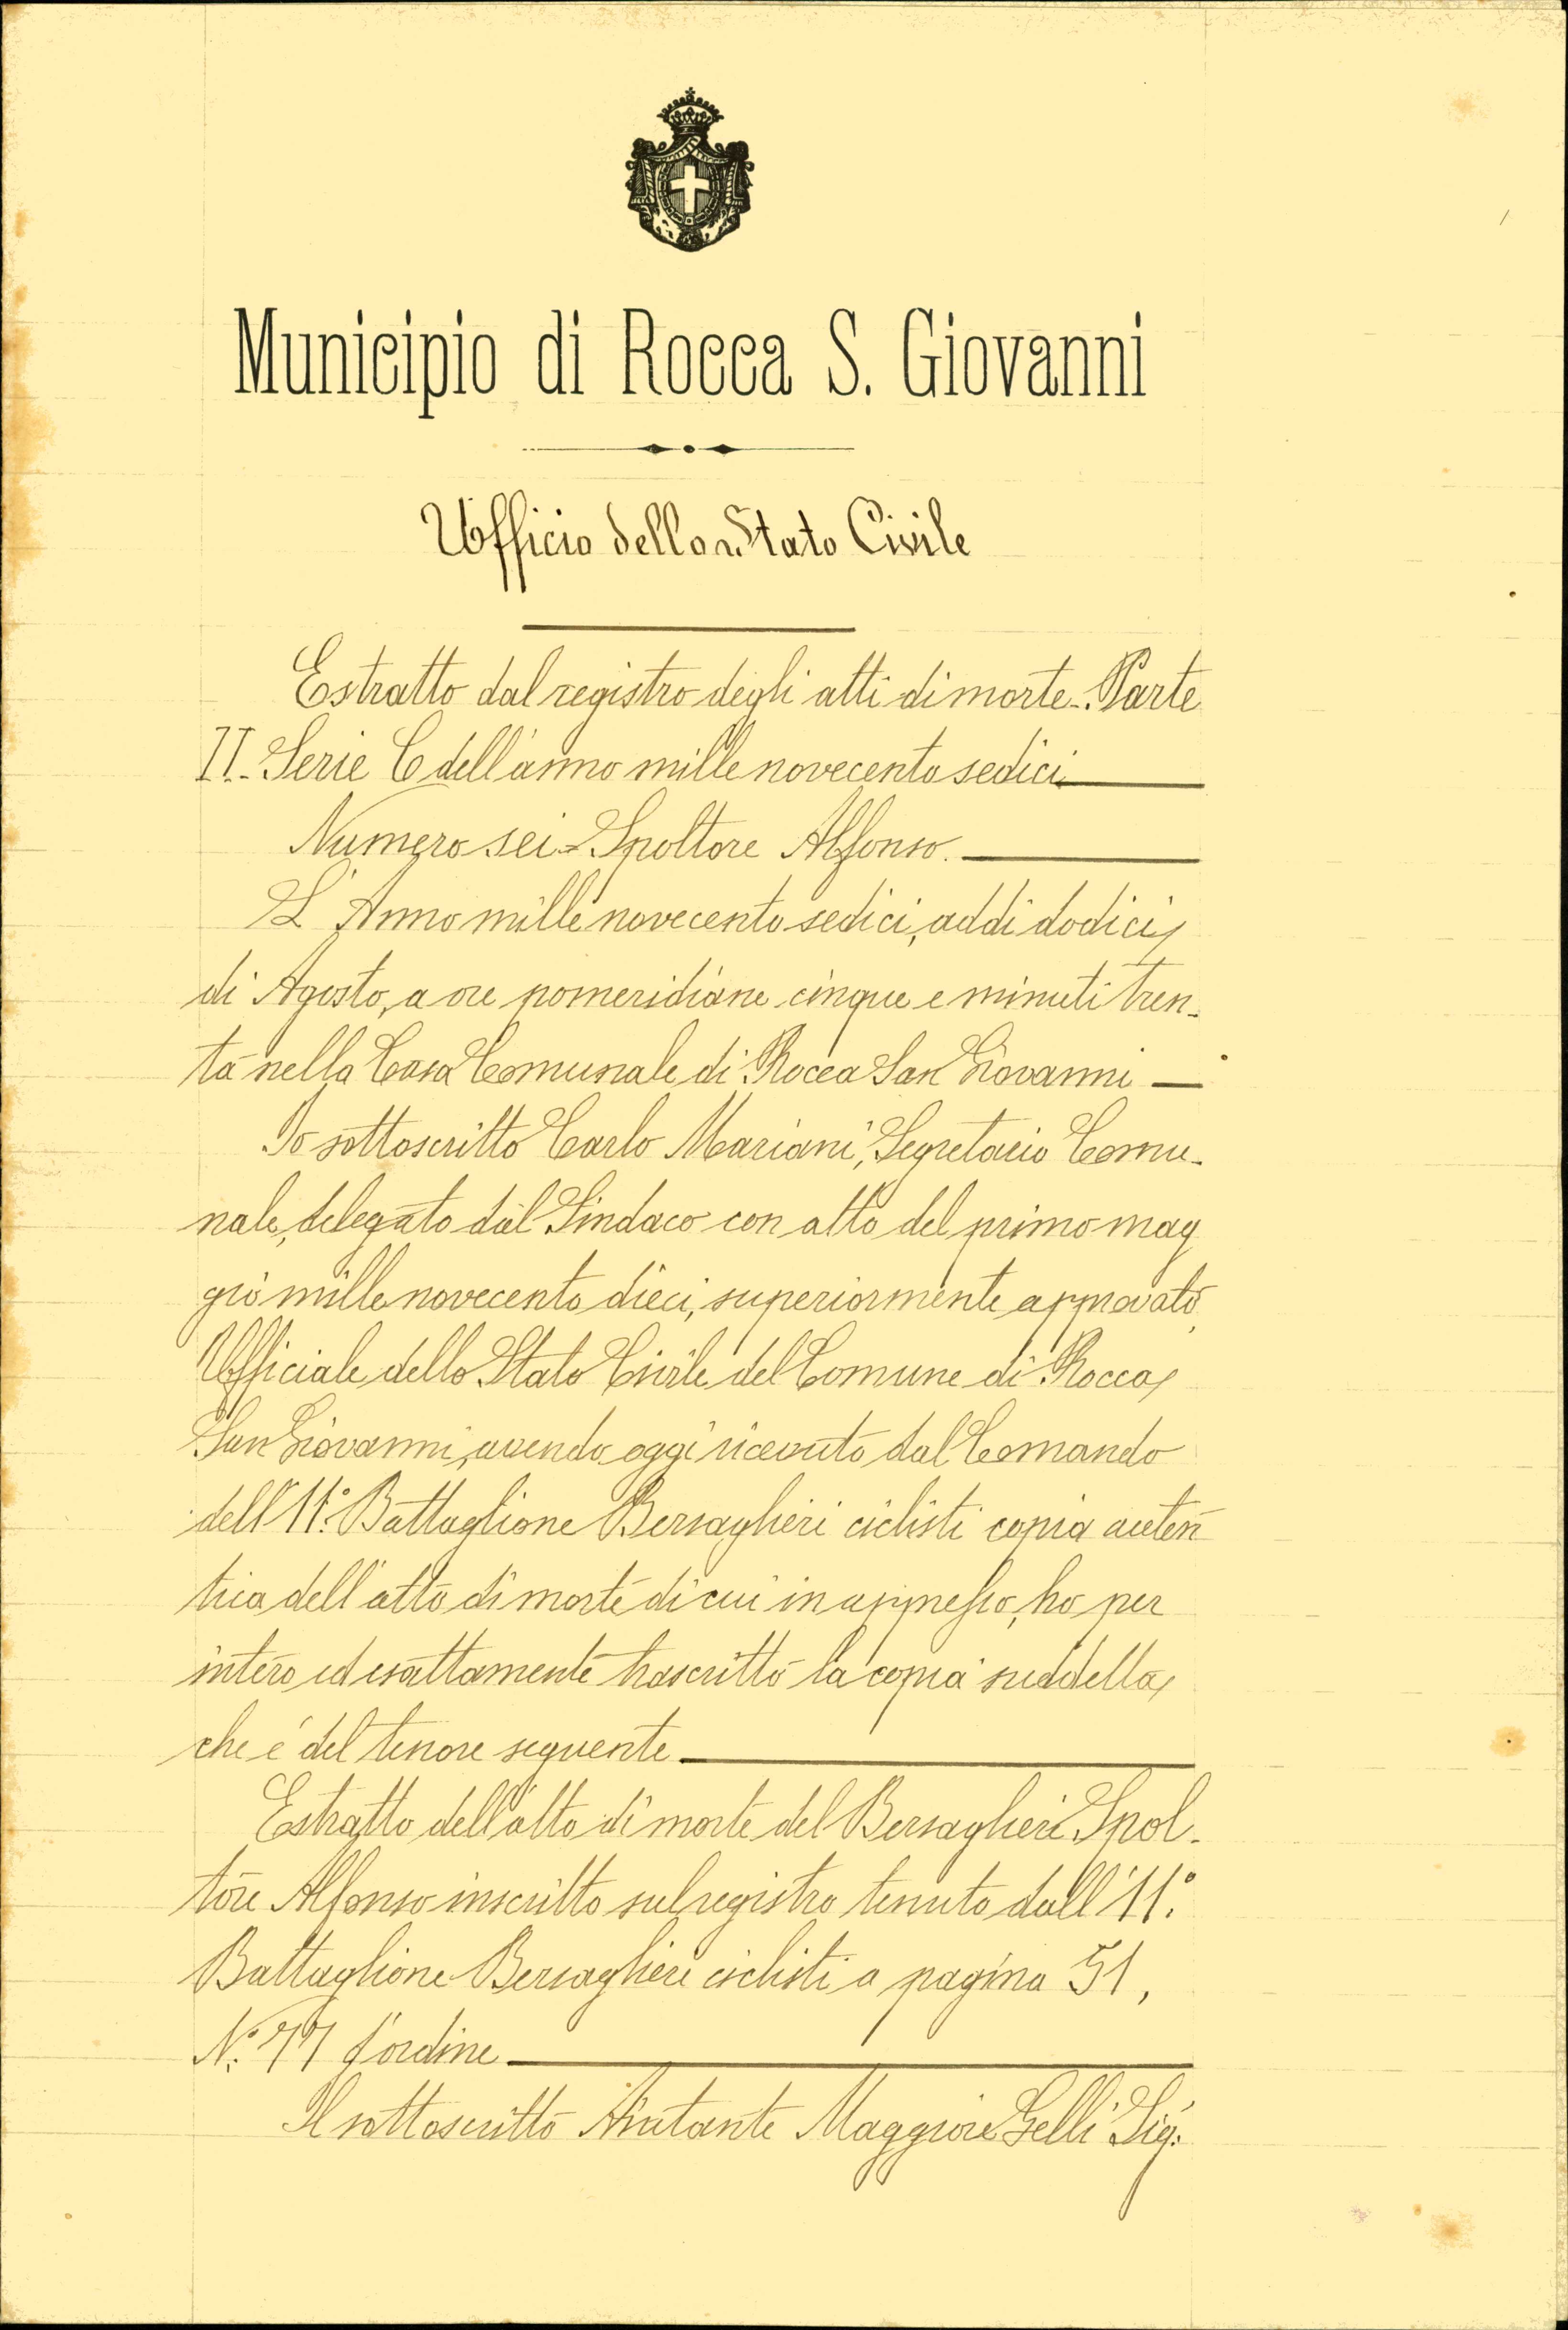 Municipio di Rocca S. Giovanni
Ufficio dello Stato Civile
Estratto dal registro degli atti di morte - Parte
II - Serie C dell'anno mille novecento sedici
Numero sei - Spoltore Alfonso.
L'Anno mille novecento sedici, addi dodici
di Agosto, a ore pomeridiane cinque e minuti tren-
ta nella Casa Comunale di Rocca San Giovanni
Io sottoscritto Carlo Mariani, Segretario Comu-
nale, delegato dal Sindaco con atto del primo mag
gio mille novecento dieci, superiormente approvato,
Ufficiale dello Stato Civile del Comune di Rocca
San Giovanni, avendo oggi ricevuto dal Comando
dell'11.° Battaglione Bersaglieri ciclisti copia auten
tica dell'atto di morte di cui in appresso, ho per
intero ed esattamente trascritto la copia suddetta,
che é del tenore seguente
Estratto dell'atto di morte del Bersaglieri Spol-
tore Alfonso inscritto sul registro tenuto dall'11.°
Battaglione Bersaglieri ciclisti a pagina 51,
N.° 77 d'ordine
Il sottoscritto Aiutante Maggiore Gelli Sig.